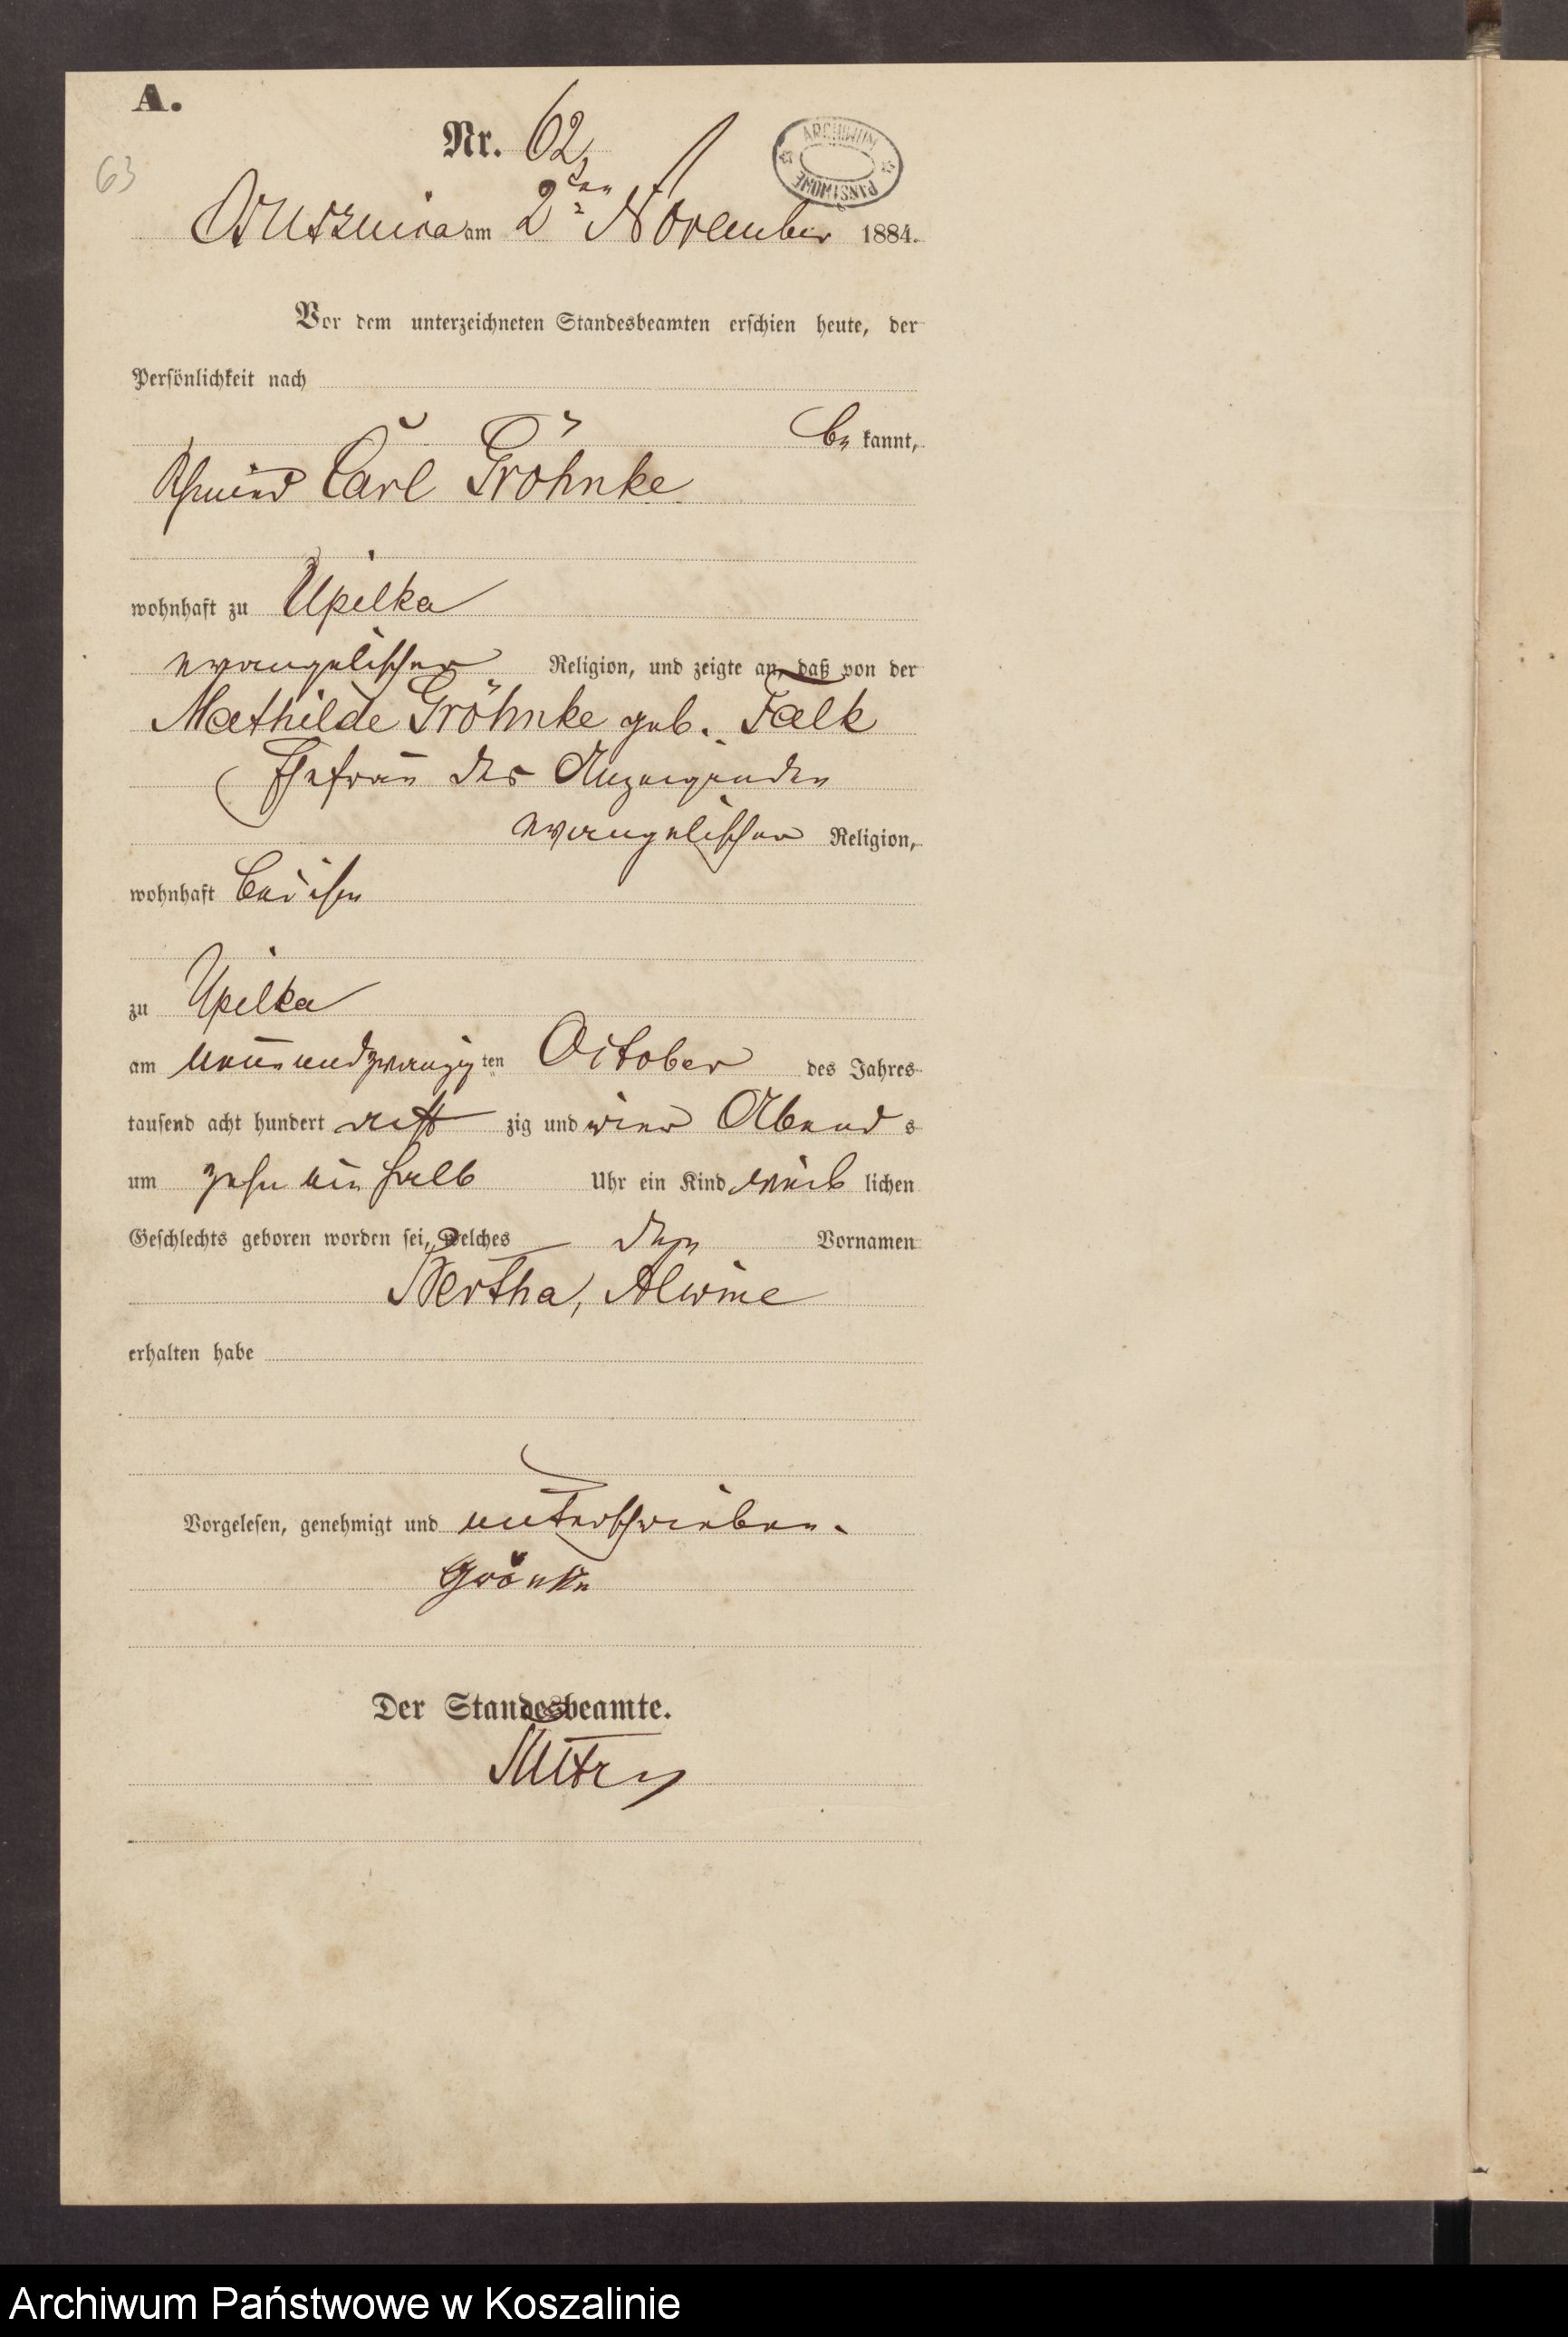 A.
Nr. 62.
63
ARCHIWUM PAŃSTWOWE
am 2ten November 1884.
Vor dem unterzeichneten Standesbeamten erschien heute, der
Persönlichkeit nach
be kannt,
Schmied Carl Gröhnke
wohnhaft zu Upilka
evangelischer Religion, und zeigte an, daß von der
Mathilde Gröhnke geb. Falk
Ehefrau des Anzeigenden
evangelischer Religion,
wohnhaft bei ihm
zu Upilka
am neunundzwanzigten October des Jahres
tausend acht hundert acht zig und vier Abend s
um zehn ein halb Uhr ein Kind weib lichen
Geschlechts geboren worden sei, welches die Vornamen
Bertha, Alwine
erhalten habe
Vorgelesen, genehmigt und unterschrieben.
Grönke
Der Standesbeamte.
Archiwum Państwowe w Koszalinie